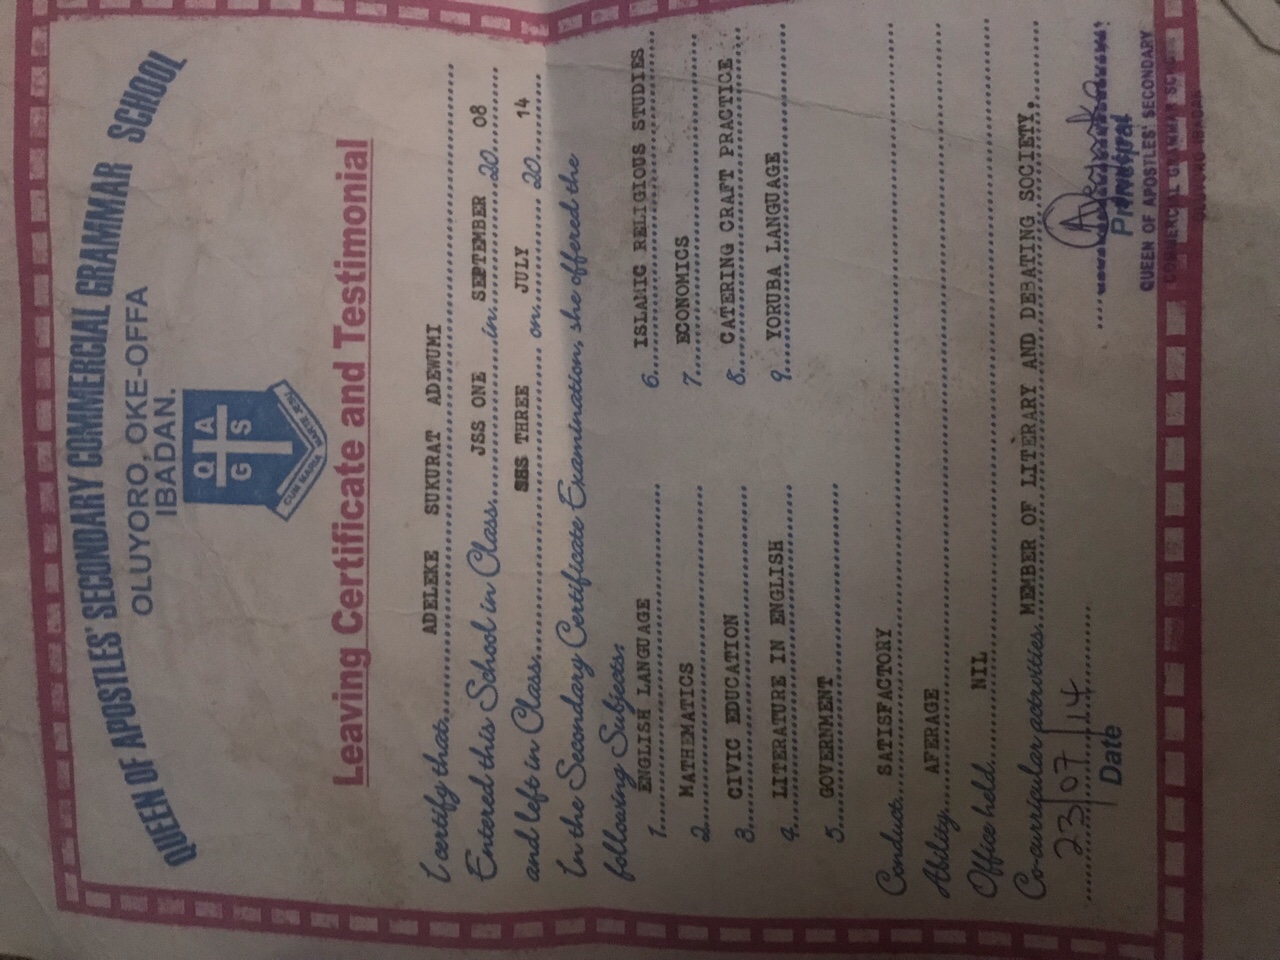 QUEEN OF APOSTLES' SECONDARY COMMERCIAL GRAMMAR SCHOOL
OLUYORO, OKE-OFFA
IBADAN.
Q A
G S
CUM MARIA MATER JESU
Leaving Certificate and Testimonial
I certify that ADELEKE SUKURAT ADEWUMI
Entered this School in Class JSS ONE in SEPTEMBER 20 08
and left in Class SSS THREE on JULY 20 14
In the Secondary Certificate Examination, she offered the
following Subjects:
1. ENGLISH LANGUAGE
2. MATHEMATICS
3. CIVIC EDUCATION
4. LITERATURE IN ENGLISH
5. GOVERNMENT
6. ISLAMIC RELIGIOUS STUDIES
7. ECONOMICS
8. CATERING CRAFT PRACTICE
9. YORUBA LANGUAGE
Conduct SATISFACTORY
Ability AFERAGE
Office held NIL
Co-curricular activities MEMBER OF LITERARY AND DEBATING SOCIETY.
23/07/14
Date
Principal
QUEEN OF APOSTLES' SECONDARY
COMMERCIAL GRAMMAR